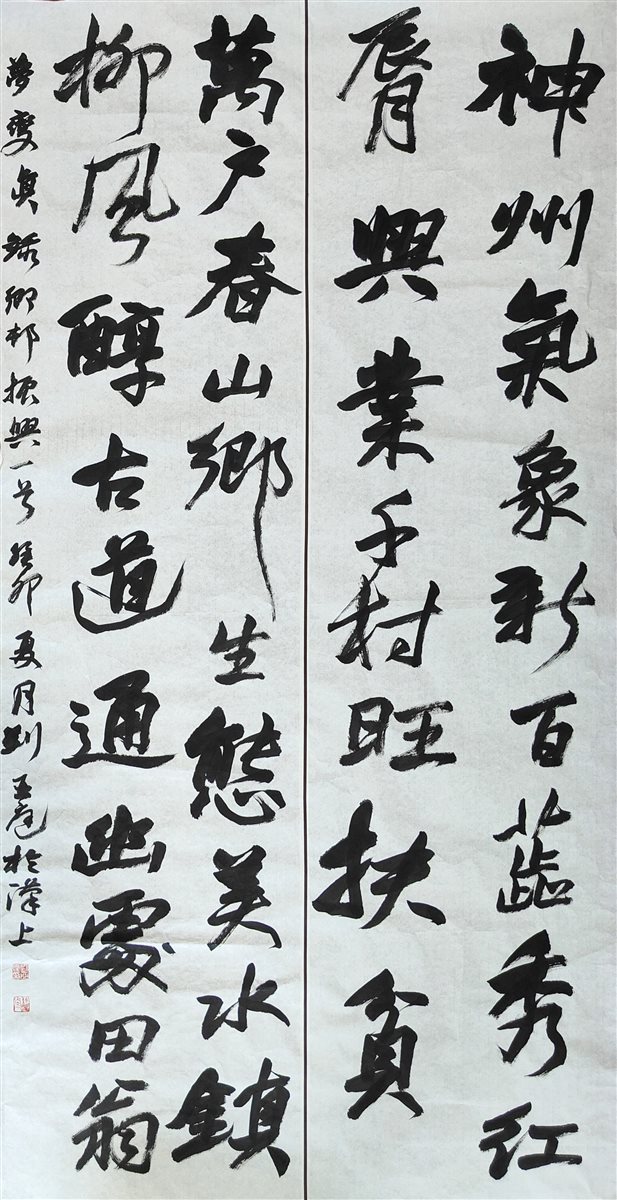 神州氣象新百蕋秀紅
脣興業千村旺扶貧
萬户春山鄉生態美水鎮
柳風醇古道通幽處田翁
夢變真錄鄉邨振興一首癸卯夏月劉於漢上